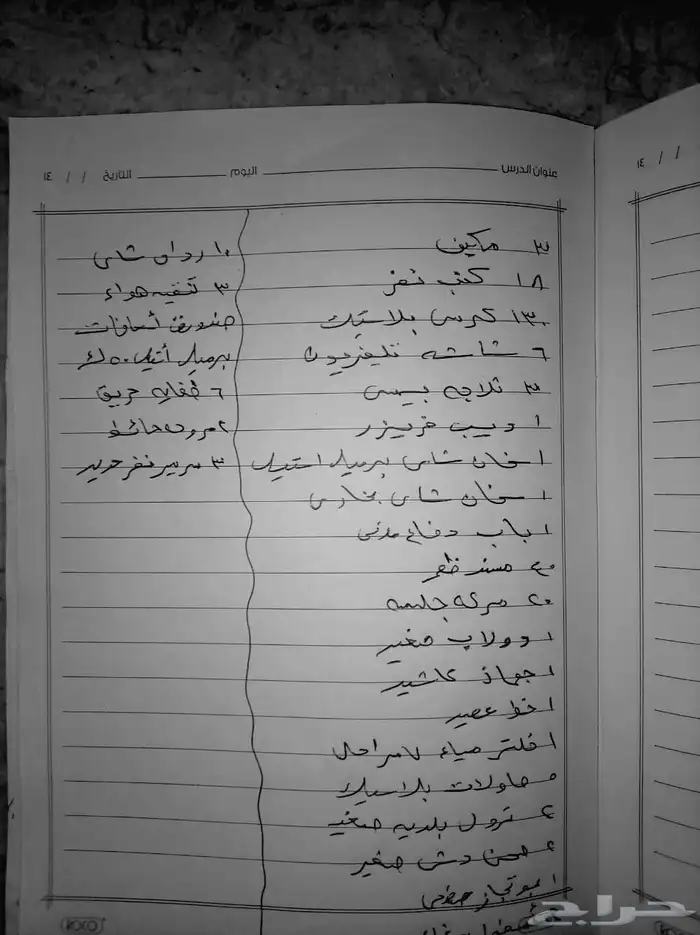 عنوان الدرس اليوم التاريخ / / ١٤
/ / ١٤
٣ مكيف
١٨ كنب نفر
١٣٠ كرسي بلاستيك
٦ شاشه تلفزيون
٣ ثلاجه بيبسي
١ ديب فريزر
١ سخان شاي برميل استيل
١ سخان شاي بخاري
١ باب دفاع مدني
٤٠ مسند ظهر
٢٠ مركه جلسه
١ دولاب صغير
١ جهاز كاشير
١ خلاط عصير
١ فلتر مياه ٧ مراحل
٥ طاولات بلاستيك
٤ نزول بلديه صغير
٤ صحن دش صغير
١ بوتجاز
١٠ رواق شاي
٣ تنقيه هواء
صندوق أسعافات
برميل أستيل ٥٠ ك
٦ طفايه حريق
٢ مروحه حائط
٣ سرير نفر حديد
حراج